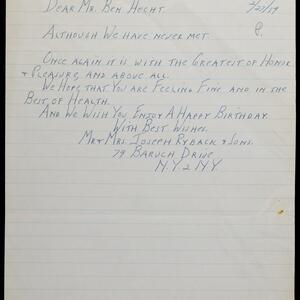 Dear Mr. Ben Hecht.
Although We have never met
Once again it is with the Greatest of Honor
& Pleasure, and above all.
We Hope that You are Feeling Fine and in the
Best of Health.
And We Wish You Enjoy A Happy Birthday.
With Best Wishes.
Mr & Mrs. Joseph Ryback & Sons.
79 Baruch Drive
N.Y 2 N.Y.